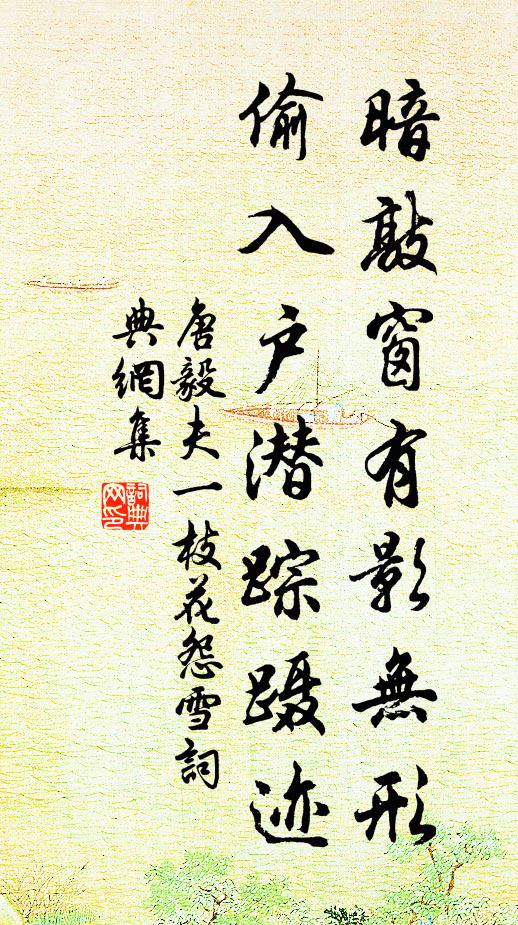 暗敲窗有影無形
偷入户潜踪蹑迹
唐毅夫一枝花怨雪詞
典網集
詞典网印